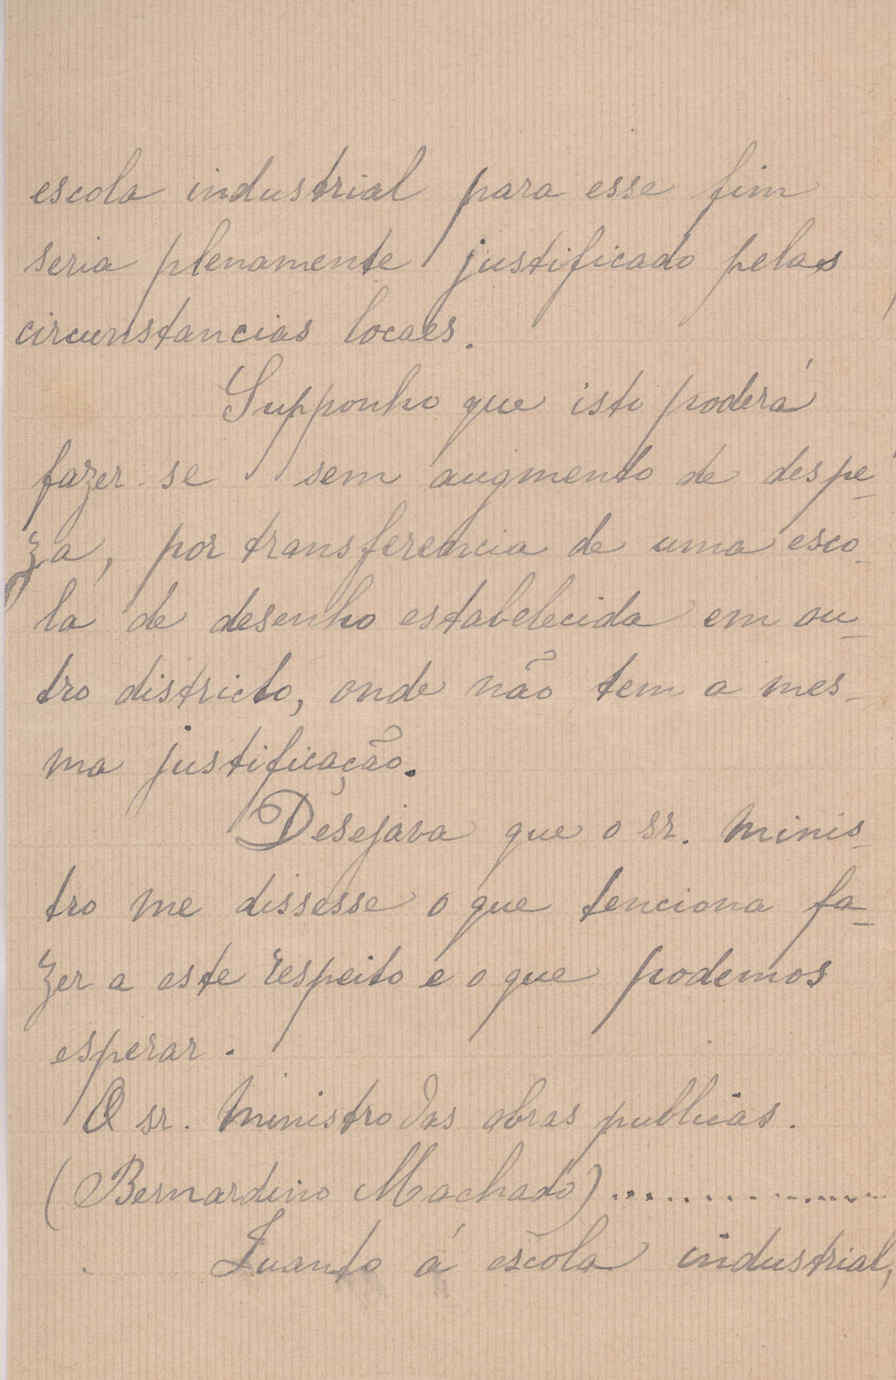 escola industrial para esse fim
seria plenamente justificado pelas
circunstancias locaes.
Supponho que isto poderá
fazer-se sem augmento de despe-
za, por transferencia de uma esco-
la de desenho estabelecida em ou-
tro districto, onde não tem a mes-
ma justificação.
Desejava que o sr. minis-
tro me dissesse o que tenciona fa-
zer a este respeito e o que podemos
esperar.
O sr. ministro das obras publicas.
(Bernardino Machado)..............
Quanto á escola industrial,